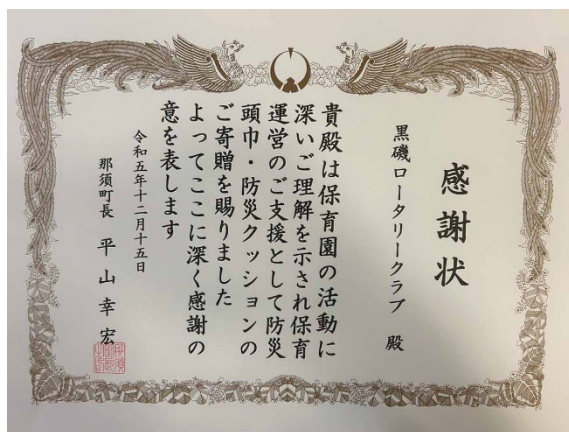 感謝状
黒磯ロータリークラブ 殿
貴殿は保育園の活動に
深いご理解を示され保育
運営のご支援として防災
頭巾・防災クッションの
ご寄贈を賜りました
よってここに深く感謝の
意を表します
令和五年十二月十五日
那須町長 平山幸宏